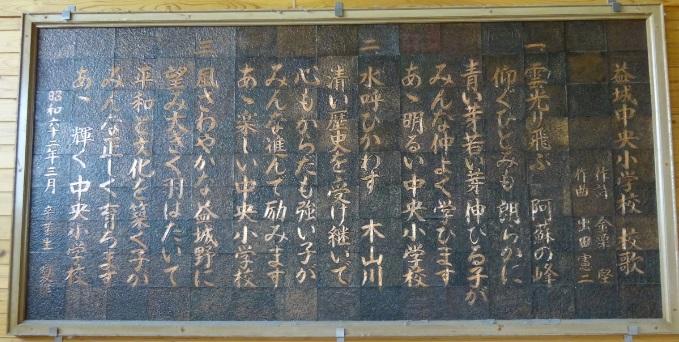 益城中央小学校 校歌
作詩 金栗 堅
作曲 出田憲二
一 雲光り飛ぶ 阿蘇の峰
仰ぐひとみも 朗らかに
青い芽若い芽伸びる子が
みんな仲よく学びます
あゝ明るい中央小学校
二 水呼びかわす 木山川
清い歴史を受け継いで
心もからだも強い子が
みんな進んで励みます
あゝ楽しい中央小学校
三 風さわやかな益城野に
望み大きく羽ばたいて
平和と文化を築く子が
みんな正しく育ちます
あゝ輝く中央小学校
昭和六十二年三月 卒業生